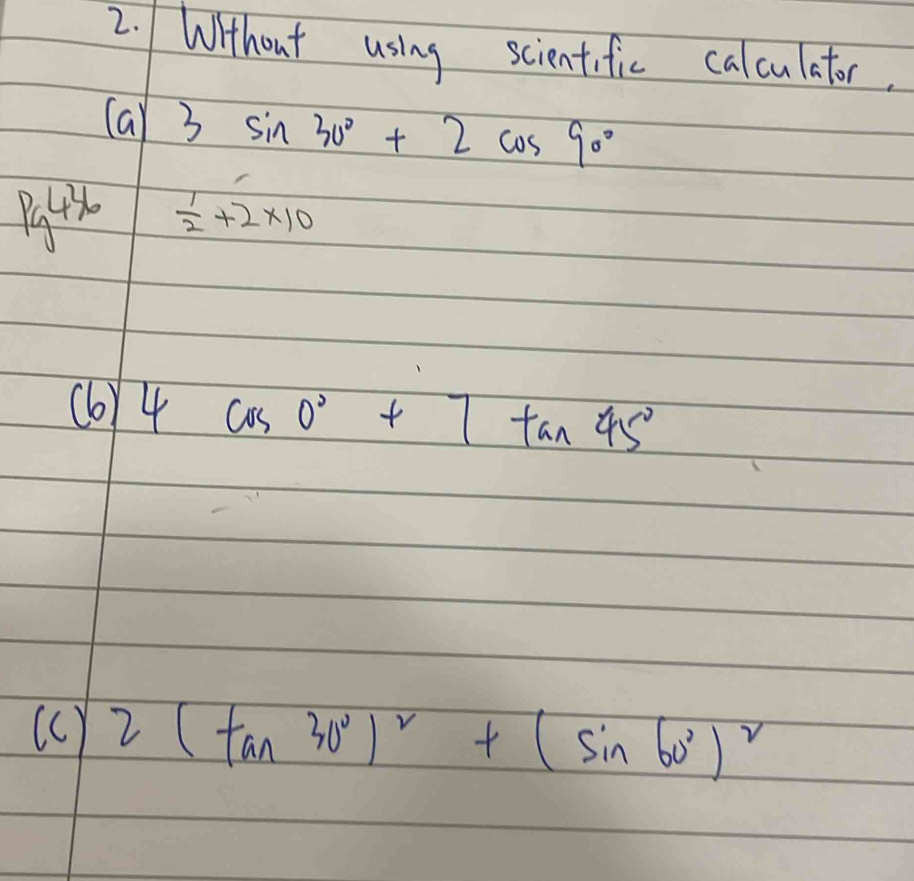 2. Without using scientific calculator.
(a) 3 sin 30° + 2 cos 90°
Pg 436 1/2 + 2 × 10
(b) 4 cos 0° + 7 tan 45°
(c) 2 (tan 30°)² + (sin 60°)²